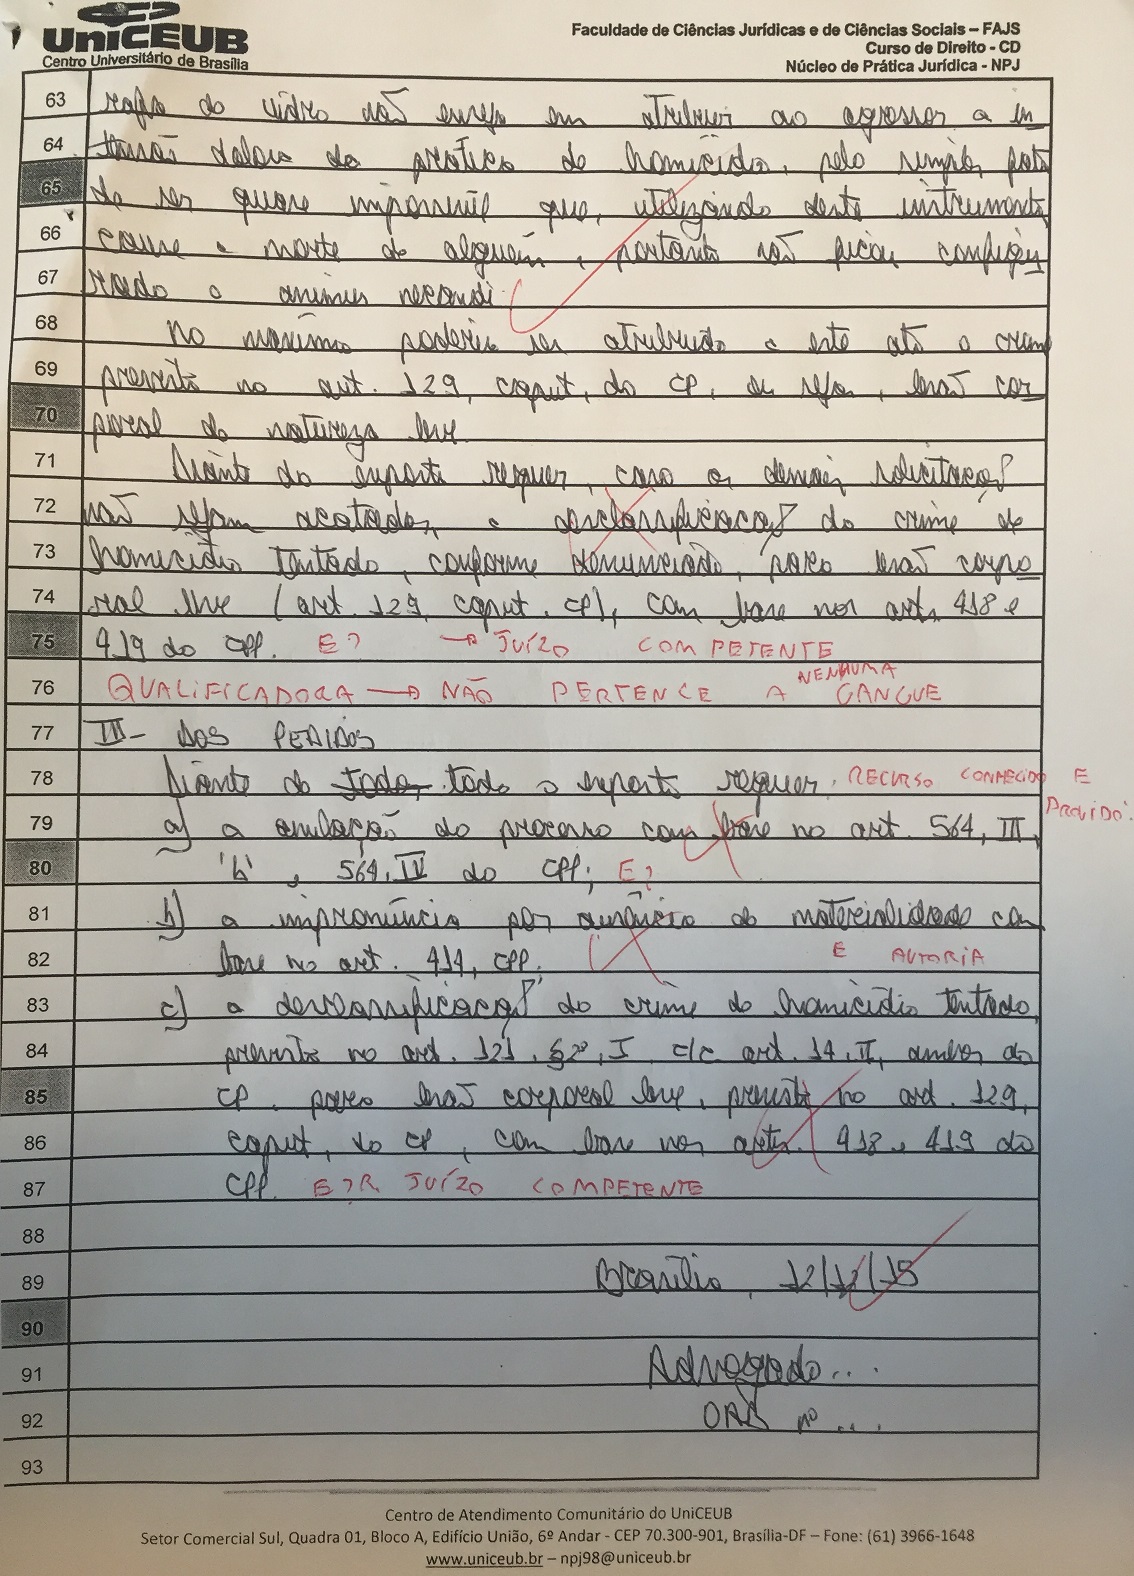 UniCEUB
Centro Universitário de Brasília
Faculdade de Ciências Jurídicas e de Ciências Sociais – FAJS
Curso de Direito - CD
Núcleo de Prática Jurídica - NPJ
63 do vidro não em atribuir ao agressor a in
64 da prática de homicídio, pelo simples fato
65 de ser quase impossível que, utilizando deste instrumento
66 cause a morte de alguém, portanto não ficou configu
67 rado o animus necandi.
68 No máximo poderia ser atribuído a este ato o crime
69 previsto no art. 129, caput, do CP, ou seja, lesão cor
70 poral de natureza leve.
71 Diante do exposto requer, caso as demais solicitações
72 não sejam acatadas, a desclassificação do crime de
73 homicídio tentado, conforme denunciado, para lesão corpo
74 ral leve (art. 129, caput, CP), com base nos arts. 418 e
75 419 do CPP. E? → JUÍZO COMPETENTE
76 QUALIFICADORA → NÃO PERTENCE A NENHUMA GANGUE
77 III - DOS PEDIDOS
78 Diante de todo o exposto requer: RECURSO CONHECIDO E PROVIDO.
79 a) a anulação do processo com base no art. 564, III,
80 'b', 564, IV do CPP; E?
81 b) a impronúncia por ausência de materialidade com
82 base no art. 414, CPP; E AUTORIA
83 c) a desclassificação do crime de homicídio tentado,
84 previsto no art. 121, §2º, I c/c art. 14, II, ambos do
85 CP, para lesão corporal leve, previsto no art. 129,
86 caput, do CP, com base nos arts. 418 e 419 do
87 CPP. JUÍZO COMPETENTE
88
89 Brasília, 12/12/15
90
91 Advogado...
92 OAB nº ...
93
Centro de Atendimento Comunitário do UniCEUB
Setor Comercial Sul, Quadra 01, Bloco A, Edifício União, 6º Andar - CEP 70.300-901, Brasília-DF – Fone: (61) 3966-1648
www.uniceub.br – npj98@uniceub.br